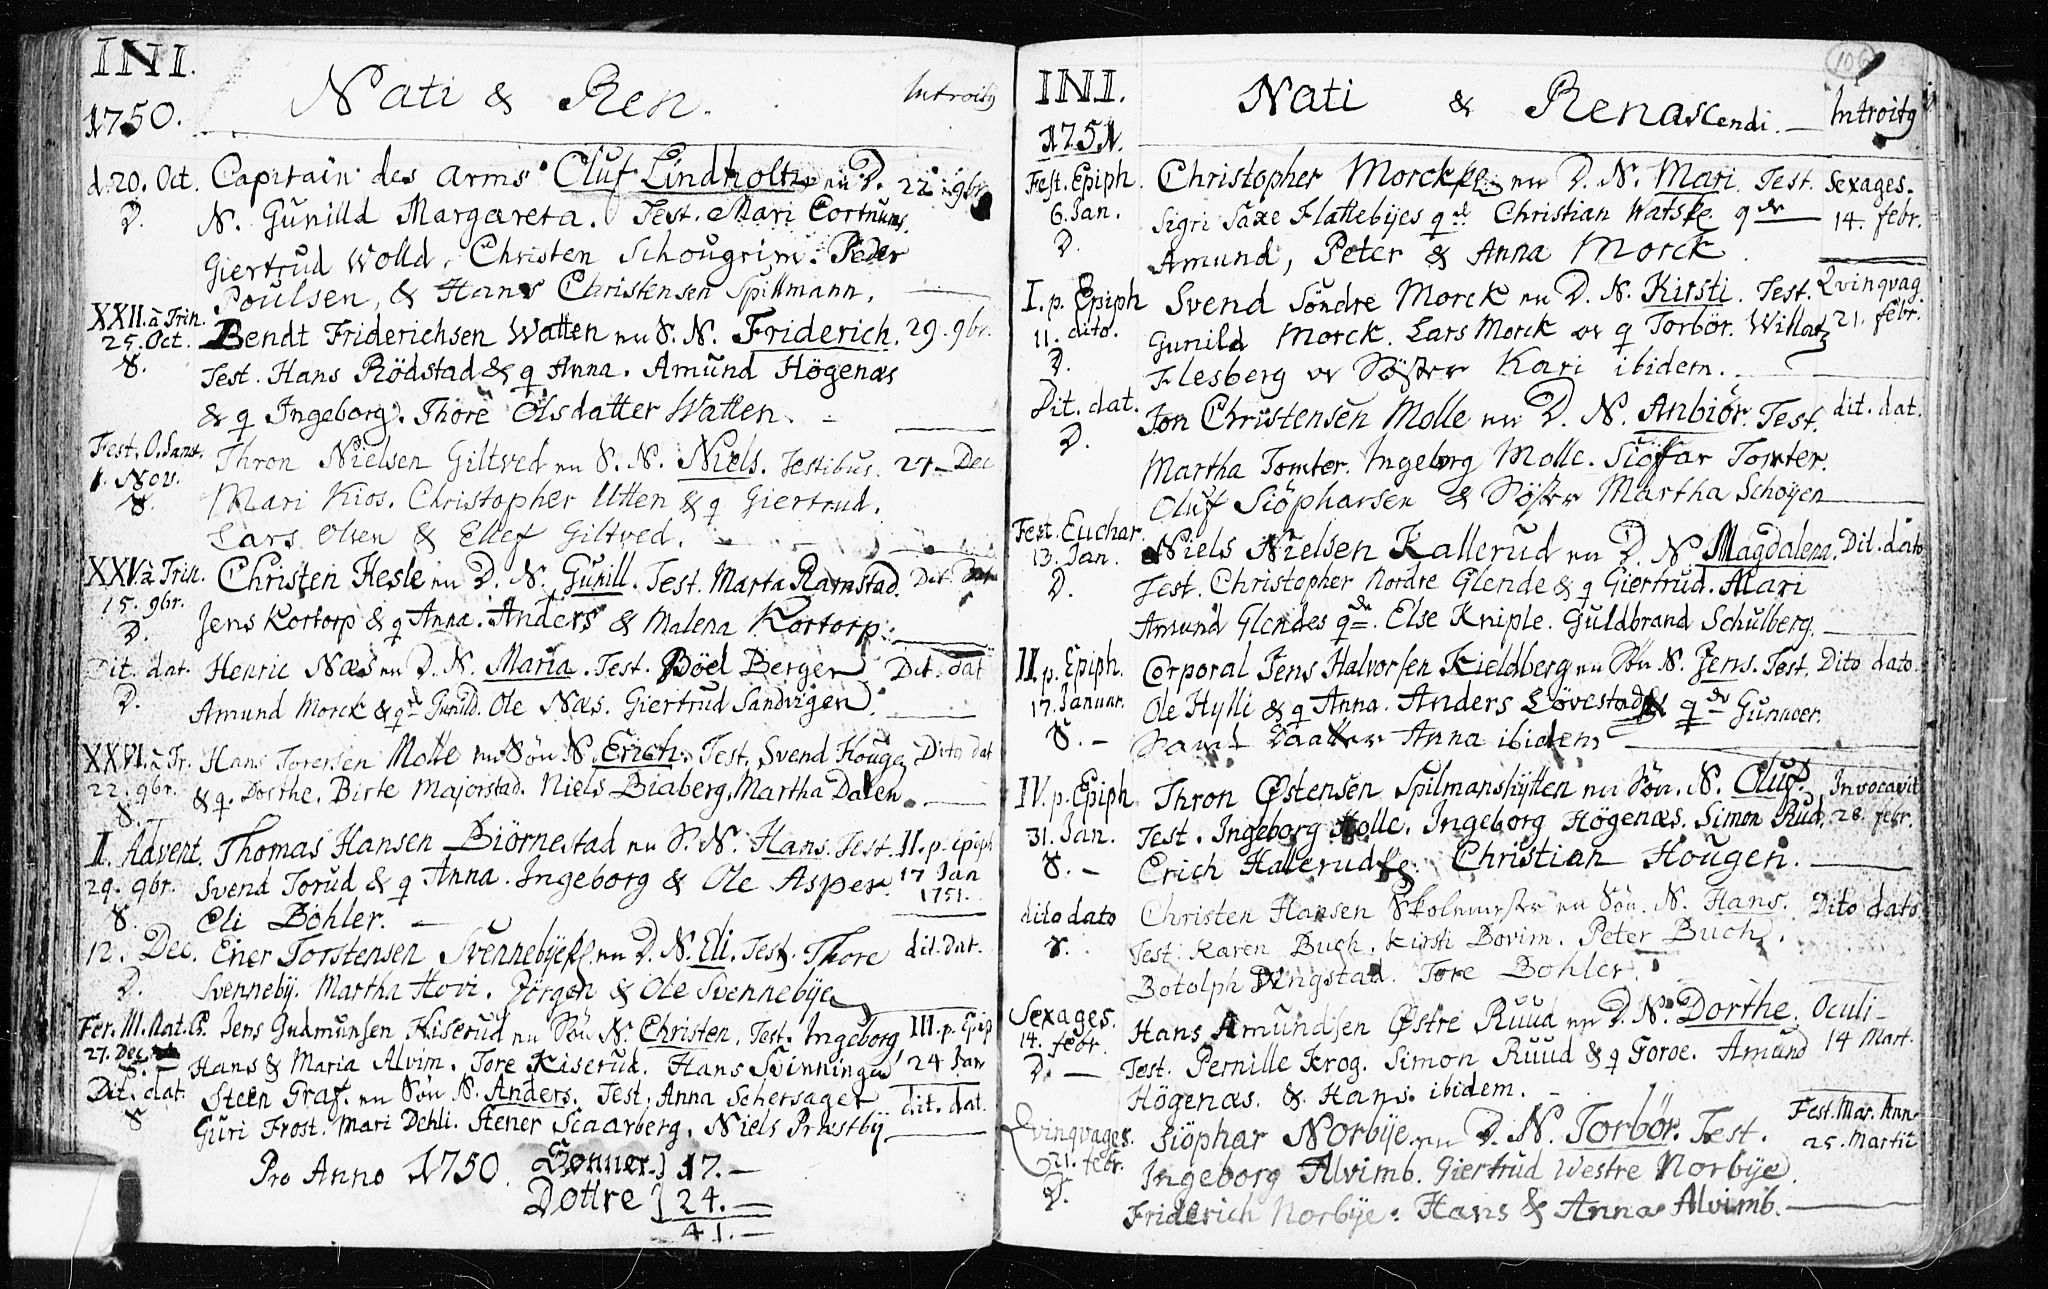 INI.
1750.
Nati & Ren.
Introity
d. 20. Oct. Capitain des arms Oluf Lindholtz en D. 22. 9br.
D. N. Gunilld Margareta. Test. Mari Cortnums,
Giertrud Wolld, Christen Schougrim. Peder
Poulsen, & Hans Christensen Spillmann.
XXII. à Trin. Bendt Friderichsen Watten en S. N. Friderich. 29. 9br.
25. Oct.
S. Test. Hans Rödstad & q Anna. Amund Högenæs
& q Ingeborg. Thore Olsdatter Watten.
Fest. O. Sanct. Thron Nielsen Giltved en S. N. Niels. Testibus. 27 Dec
1. Nov. Mari Kios. Christopher Utten & q Giertrud.
S. Lars Olsen & Ellef Giltved.
XXV. à Trin. Christen Hesle en D. N. Gunill. Test. Marta Ramstad. Dit. dat
15. 9br.
D. Jens Kortorp & q Anna. Anders & Malena Kortorp.
Dit. dat. Henric Næs en D. N. Maria. Test. Böel Berger Dit. dat
D. Amund Morck & q Gunild. Ole Næs. Giertrud Sandvigen.
XXVI. à Tr. Hans Toresen Molle en Sön N. Erich. Test. Svend Houga Dito dat
22. 9br. & q. Dorthe. Birte Majorstad. Niels Biaberg. Martha Dalen.
S.
I. Advent. Thomas Hansen Biörnestad en S. N. Hans. Test. II. p. Epiph
29. 9br. Svend Torud & q Anna. Ingeborg & Ole Asper. 17 Jan
1751.
S. Eli Böhler.
12. Dec. Ener Torstensen Svennebye en D. N. Eli. Test. Thore dit. dat.
D. Svenneby. Martha Hovi. Jörgen & Ole Svennebye
Fer. III. Nat. C. Jens Gudmunsen Kiserud en Sön N. Christen. Test. Ingeborg III. p. Epip
27. Dec. Hans & Maria Alvim. Tore Kiserud. Hans Svinninga 24 Jan
Dit. dat. Steen Graf en Sön N. Anders. Test. Anna Schersager dit. dat.
S Guri Frost. Mari Dehli. Stener Scaarberg. Niels Præstby
Pro Anno 1750. Sönner 17.
Döttre 24.
41.
INI.
1751.
Nati & Renascendi.
Introity
106
Fest. Epiph. Christopher Morck en D. N. Mari. Test. Sexages.
6. Jan. Sigri Saxe Flattebyes q Christian Watske q 14. febr.
D. Amund, Peter & Anna Morck.
I. p. Epiph Svend Söndre Morck en D. N. Kirsti. Test. Qvinqvag
11. dito. Gunild Morck. Lars Morck & q Torbör. Willatz 21. febr.
D. Flesberg & Söster Kari ibidem.
Dit. dat. Jon Christensen Molle en D. N. Anbiör. Test. dit. dat.
D. Martha Tomter. Ingeborg Molle. Siöffar Tomter.
Oluf Siöpharsen & Söster Martha Schöyen
Fest. Euchar. Niels Nielsen Kallerud en D. N Magdalena. Dit. dato
13. Jan.
D. Test. Christopher Nordre Glende & q Giertrud. Mari
Amund Glendes q. Else Kniple. Guldbrand Schulberg.
II. p. Epiph. Corporal Jens Halvorsen Kieldberg en Sön N. Jens. Test. Dito dato.
17. Januar. Ole Hylli & q Anna. Anders Lövestad & q Gunnoer.
S. Anna ibidem
IV. p. Epiph Thron Østensen Spilmanshytten en Sön. N. Oluf. Invocavit
31. Jan. Test. Ingeborg Molle. Ingeborg Högenæs. Simon Rud. 28. febr.
S. Erich Hallerud. Christian Hougen.
dito dato Christen Hansen Skolemester en Sön. N. Hans. Dito dato
S. Test. Karen Buch. Kirsti Bovim. Peter Buch.
Botolph Wingstad. Tore Bohler.
Sexages. Hans Amundsen Østre Ruud en D. N. Dorthe. Oculi
14. febr.
D. Test. Pernille Krog. Simon Ruud & q Goroe. Amund 14 Mart.
Högenæs. & Hans. ibidem.
Qvinqvages. Siöphar Norbye en D. N. Torbör. Test. Fest. Mar. Ann.
21. febr. Ingeborg Alvimb. Giertrud Westre Norbye. 25. Martii
D. Friderich Norbye. Hans & Anna Alvimb.